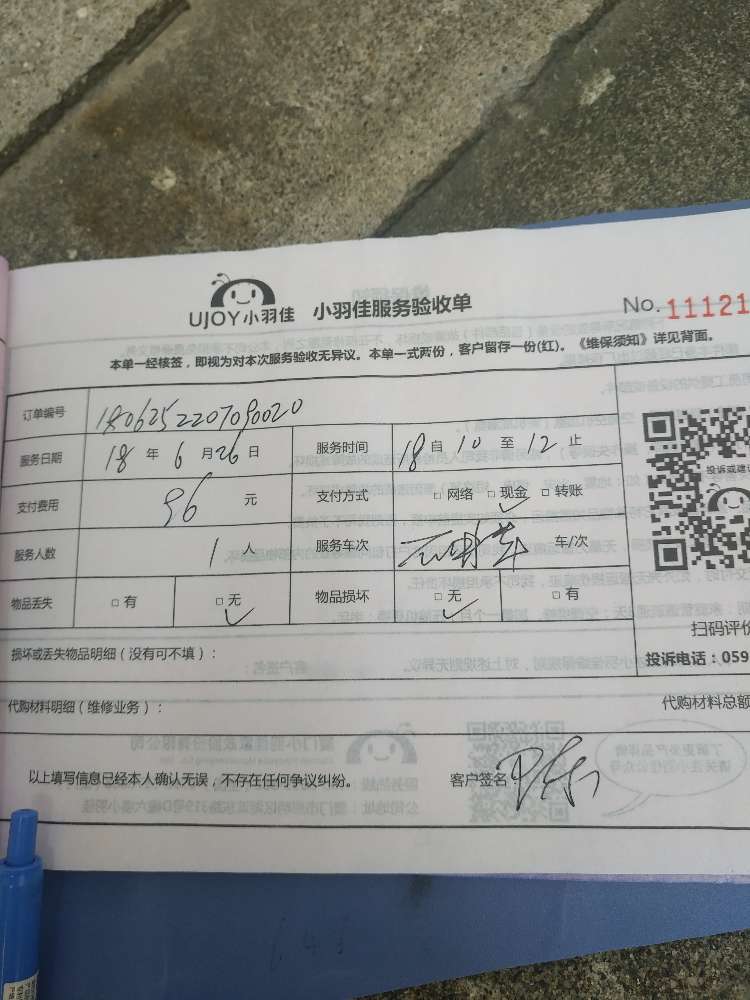 UJOY小羽佳 小羽佳服务验收单 No. 11121
本单一经核签，即视为对本次服务验收无异议。本单一式两份，客户留存一份(红)。《维保须知》详见背面。
订单编号 1806252207090020
服务日期 18 年 6 月 26 日 服务时间 18 自 10 至 12 止
支付费用 96 元 支付方式 □ 网络 □ 现金 □ 转账
服务人数 1 人 服务车次 车/次
物品丢失 □ 有 □ 无 物品损坏 □ 无 □ 有
投诉或建议
扫码评价
投诉电话：059
损坏或丢失物品明细（没有可不填）：
代购材料明细（维修业务）： 代购材料总额
以上填写信息已经本人确认无误，不存在任何争议纠纷。 客户签名：